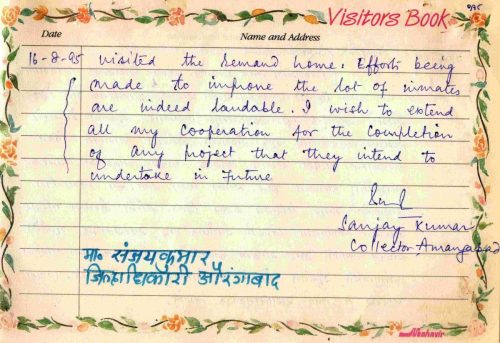 935
Visitors Book
Date Name and Address
16-8-95 visited the remand home. Efforts being
made to improve the lot of inmates
are indeed laudable. I wish to extend
all my cooperation for the completion
of any project that they intend to
undertake in future
Sanjay Kumar
Collector, Aurangabad
मा. संजयकुमार
जिल्हाधिकारी औरंगाबाद
Mahavir